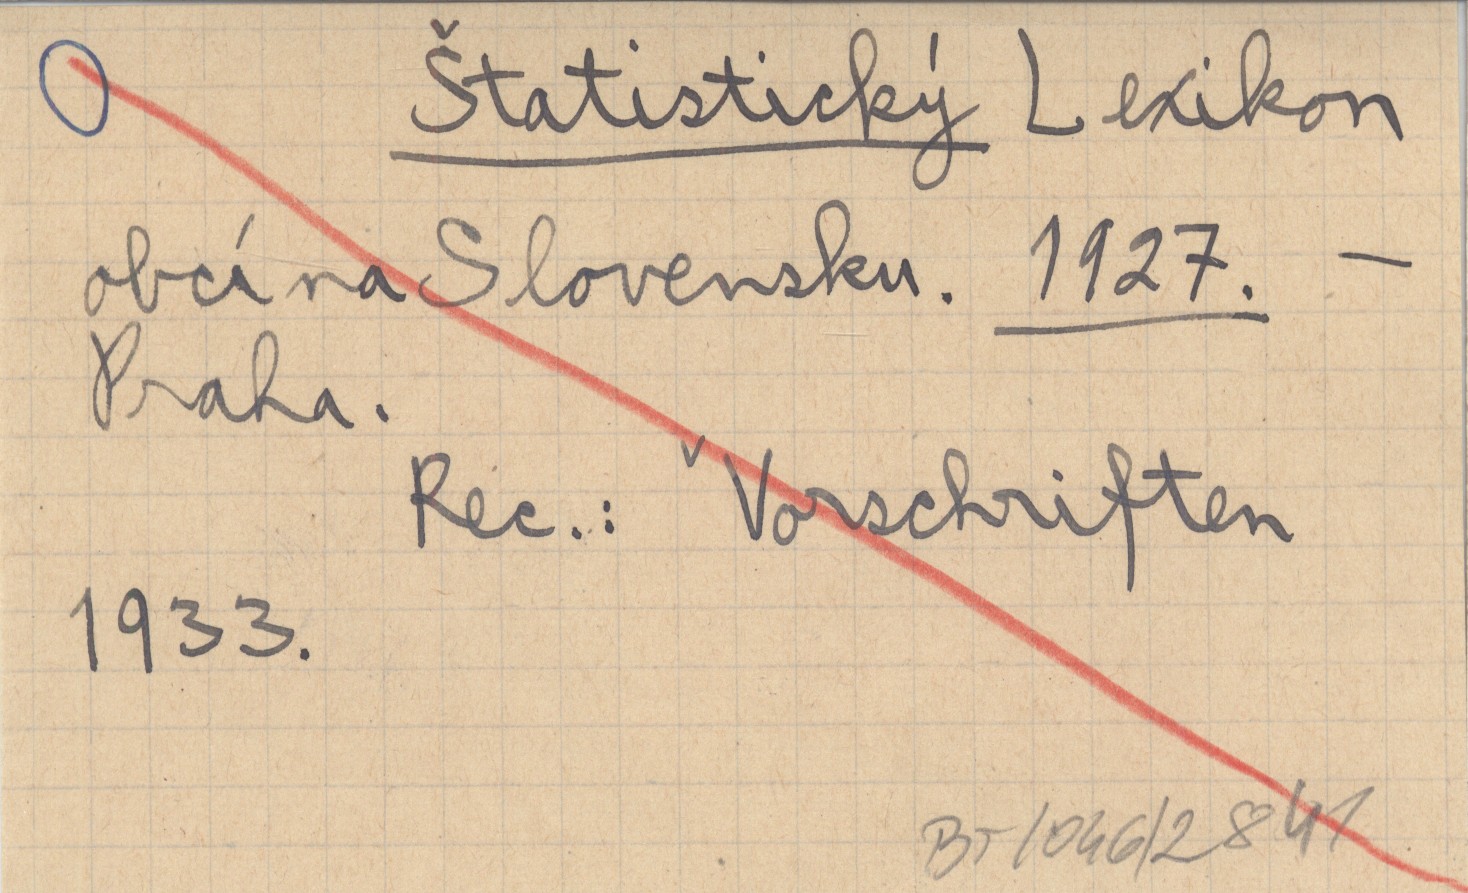 Štatistický Lexikon
obcí na Slovensku. 1927. —
Praha.
Rec.: Vorschriften
1933.
BT/046/2841